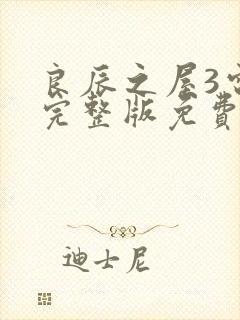 良辰之屋3
完整版免費
迪士尼